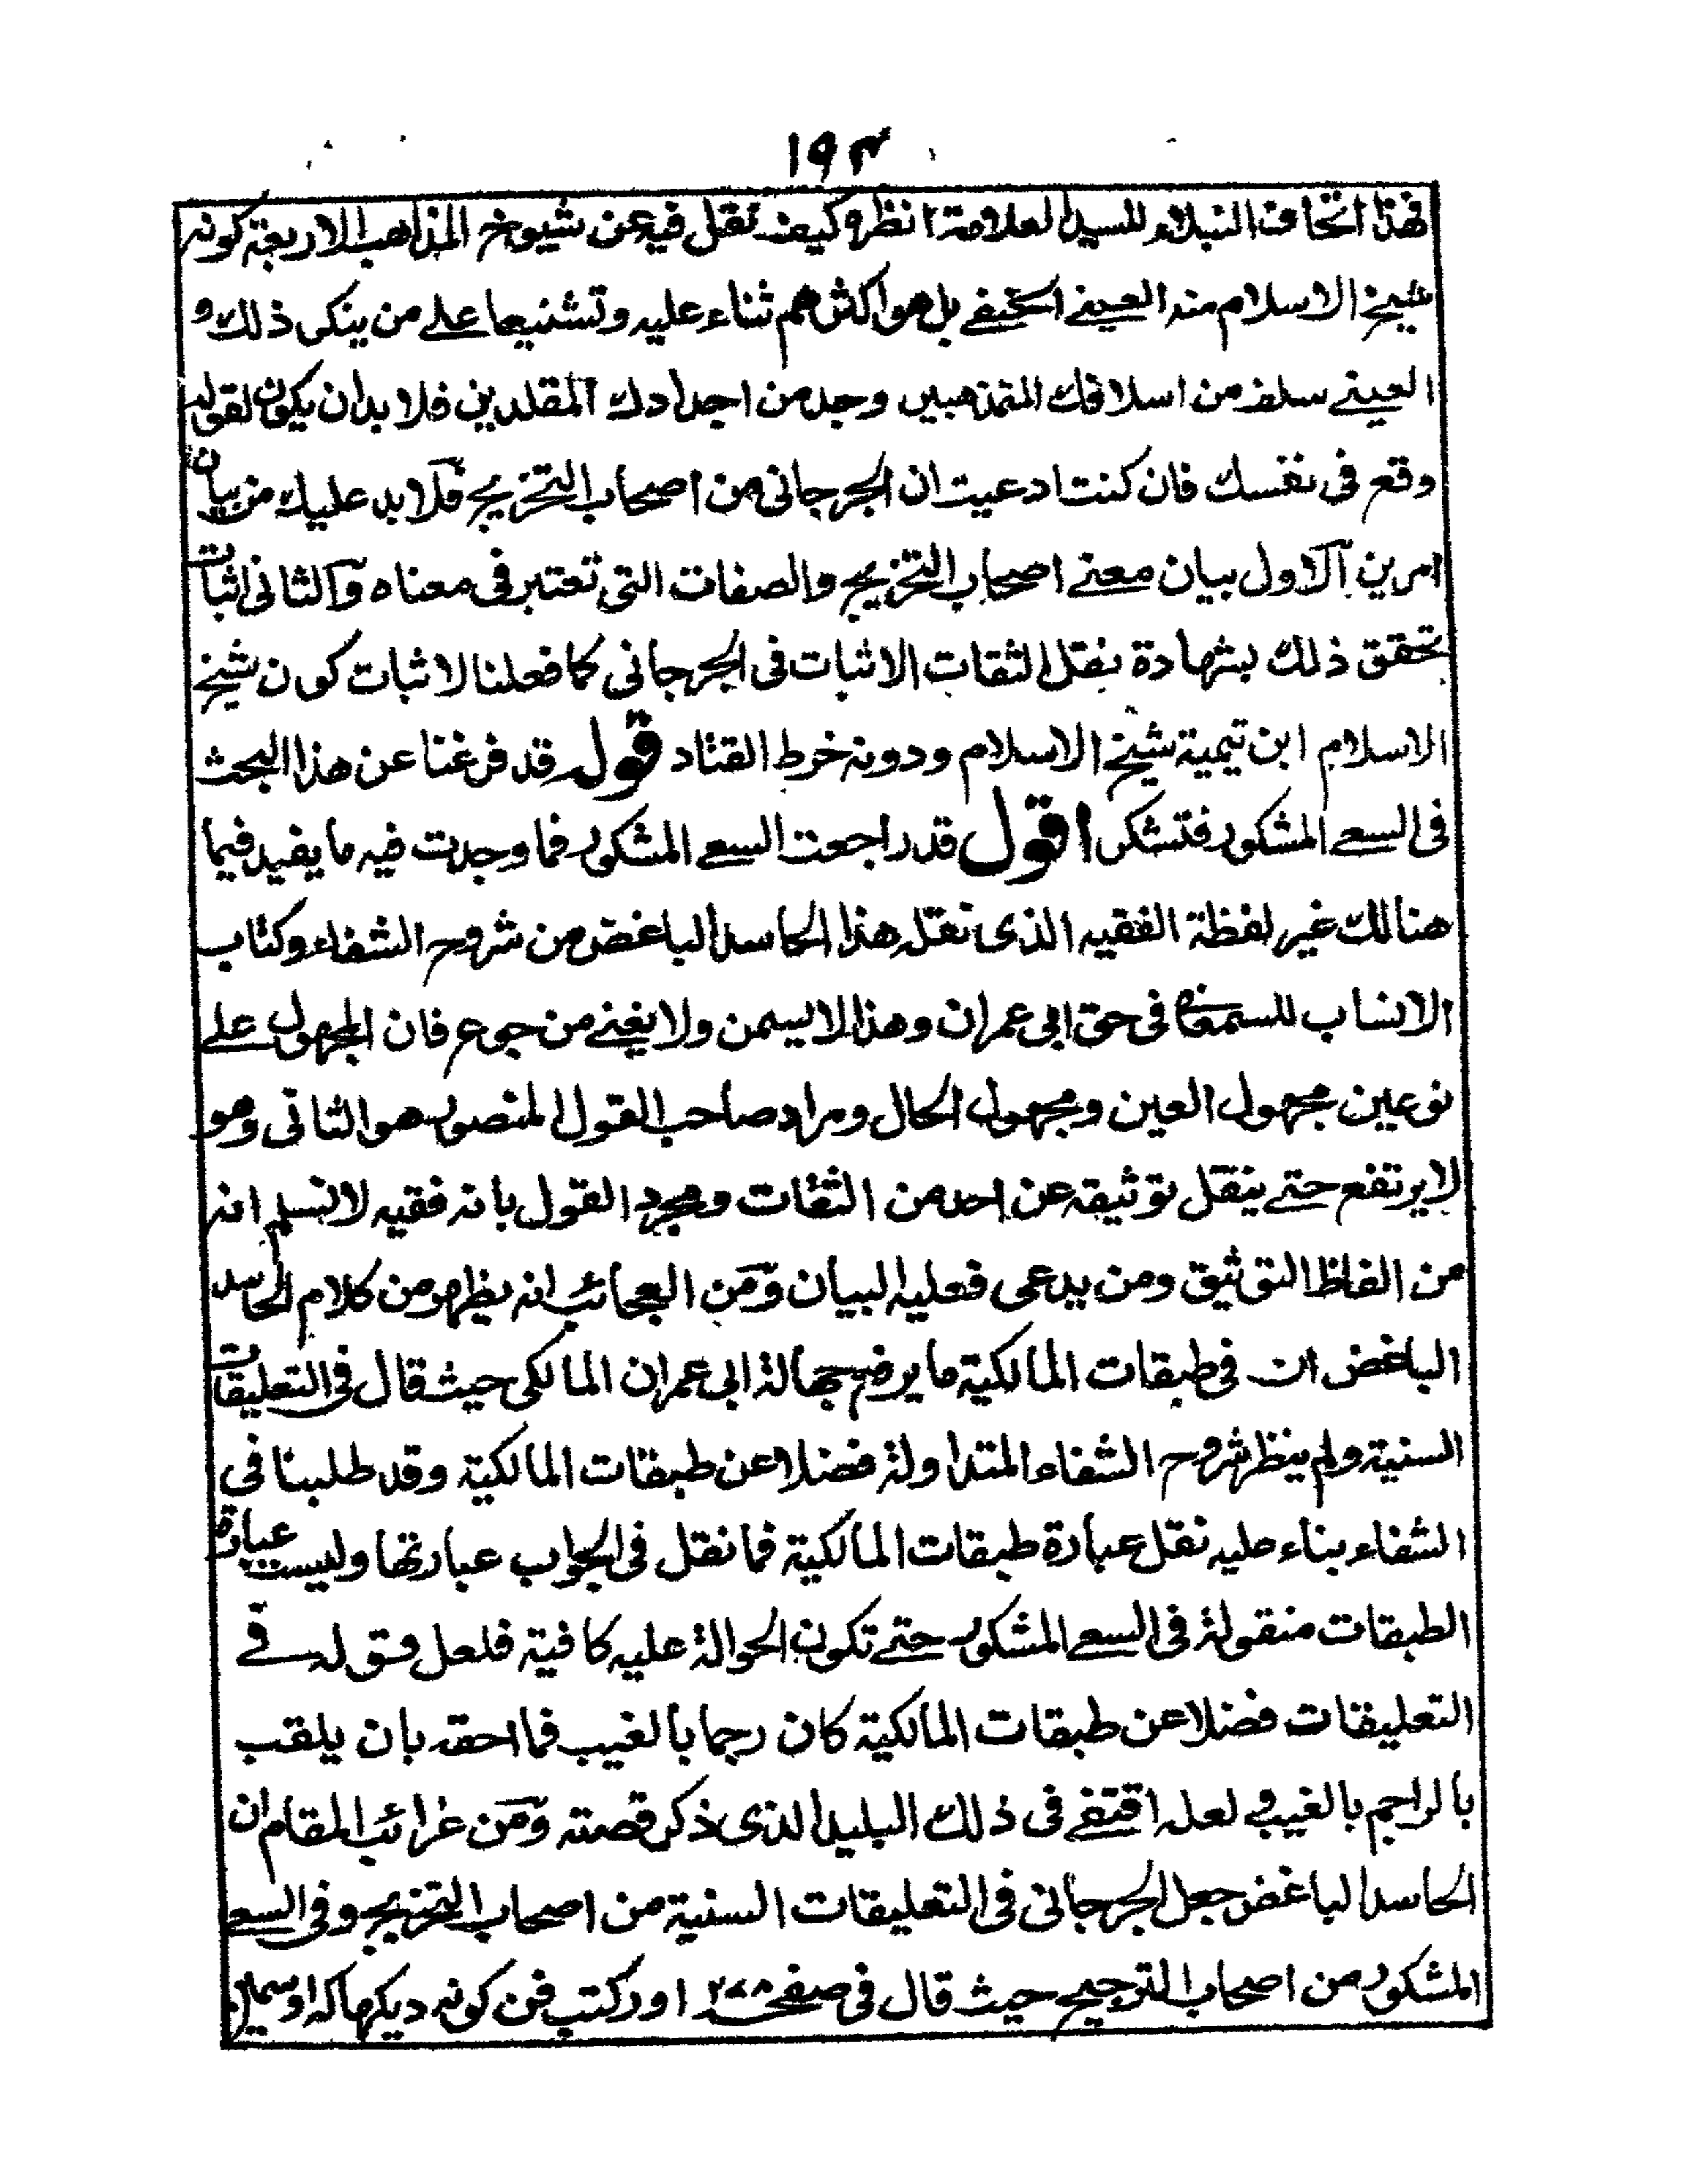 ١٩٣
فهذا اتحاف النبلاء للسيد العلامة انظره كيف نقل فيه عن شيوخ المذاهب الاربعة كونه
شيخ الاسلام منه العيني الحنفي بل هو اكثرهم ثناء عليه وتشنيعا على من ينكر ذلك و
العيني سلف من اسلافك المتمذهبين وجد من اجدادك المقلدين فلا بد ان يكون لقوله
وقع في نفسك فان كنت ادعيت ان الجرجاني من اصحاب التخريج فلا بد عليك من بيان
امرين الاول بيان معنى اصحاب التخريج والصفات التي تعتبر في معناه والثاني اثبات
تحقق ذلك بشهادة نقل الثقات الاثبات في الجرجاني كما فعلنا لاثبات كون شيخ
الاسلام ابن تيمية شيخ الاسلام ودونه خرط القتاد قوله قد فرغنا عن هذا البحث
في السعي المشكور فتشكر اقول قد راجعت السعي المشكور فما وجدت فيه ما يفيد فيما
هنالك غير لفظة الفقيه الذي نقله هذا الحاسد الباغض من شروح الشفاء وكتاب
الانساب للسمعاني في حق ابي عمران وهذا لا يسمن ولا يغني من جوع فان المجهول على
نوعين مجهول العين ومجهول الحال ومراد صاحب القول المنصور هو الثاني وهو
لا يرتفع حتى ينقل توثيقه عن احد من الثقات ومجرد القول بانه فقيه لا نسلم انه
من الفاظ التوثيق ومن يدعي فعليه البيان ومن العجائب انه يظهر من كلام الحاسد
الباغض ان في طبقات المالكية ما يرفع جهالة ابي عمران المالكي حيث قال في التعليقات
السنية ولم ينظر شروح الشفاء المتداولة فضلا عن طبقات المالكية وقد طلبنا في
الشفاء بناء عليه نقل عبارة طبقات المالكية فما نقل في الجواب عبارتها وليست عبارة
الطبقات منقولة في السعي المشكور حتى تكون الحوالة عليه كافية فلعل قوله في
التعليقات فضلا عن طبقات المالكية كان رجما بالغيب فما احقه بان يلقب
بالراجم بالغيب ولعله اقتفى في ذلك البليد الذي ذكر قصته ومن غرائب المقام ان
الحاسد الباغض جعل الجرجاني في التعليقات السنية من اصحاب التخريج وفي السعي
المشكور من اصحاب الترجيح حيث قال في صفحة ٢٧٨ اور كتب فن كو نه ديكها كه اوسمين